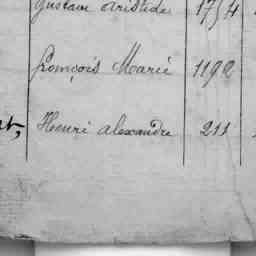 Gustave Aristide 1754
François Marie 1192
at, Henri alexandre 211